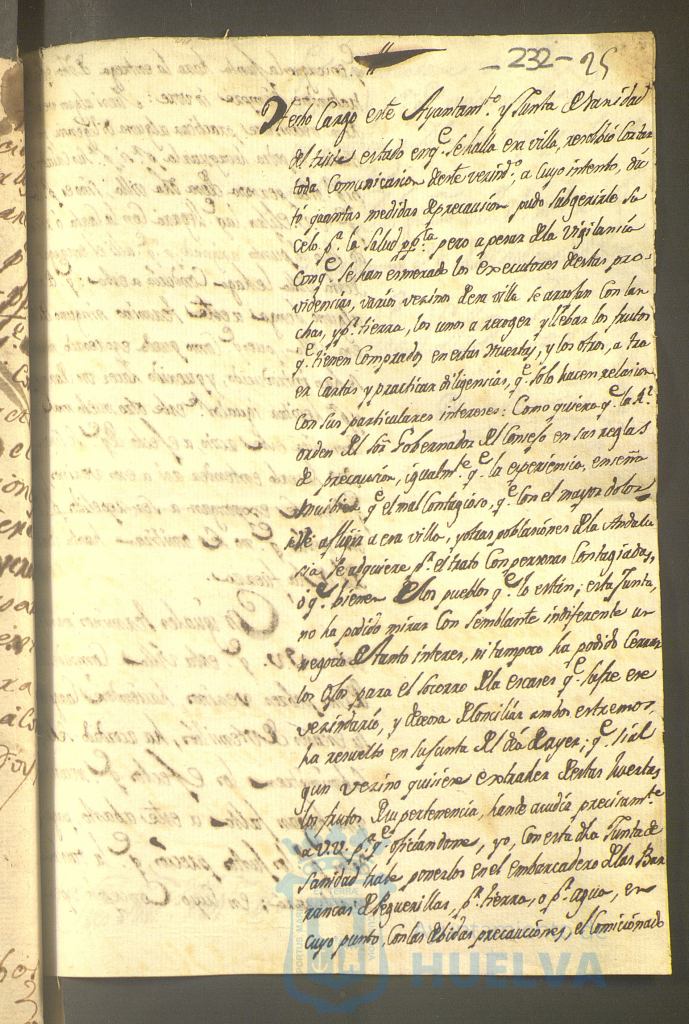 -232- 25
Hecho Cargo este Ayuntamto. y Junta de Sanidad
del triste estado en qe. se halla esa villa, resolbió Cortar
toda Comunicacion deste vezindo., a Cuyo intento, dic
tó quantas medidas de precausion pudo Subgerirle Su
Celo pa. la Salud ppca. pero a pesar de la Vigilancia
Conqe. se han esmerado los executores destas pro-
videncias, varios vezinos de esa villa se arrojan Con lan
chas, y pr. tierra, los unos a recoger y llebar los frutos
qe. tienen Comprados en estas Huertas, y los otros, a tra
er Cartas y practicar diligencias, qe. solo hacen relacion
Con sus particulares intereses: Como quiera qe. la Rl.
orden del Sor Gobernador del Consejo en sus reglas
de precausion, igualmte. qe. la experiencia, enseña
qe. el mal Contagioso, qe. Con el mayor dolor
aflijia a esa villa, y otras poblasiones de la Andalu
sia se adquiere pr. el trato Con personas Contagiadas,
o qe. bienen de los pueblos qe. lo están; esta Junta,
no ha podido mirar Con semblante indiferente un
negocio de tanto interes, ni tampoco ha podido Cerrar
los Ojos para el Socorro de la escases qe. sufre ese
vezindario, y deseosa de Conciliar ambos estremos,
ha resuelto en su Junta del dia de ayer; qe. si al
gun vezino quisiere extraher destas huertas
los frutos de su pertenencia, hande acudir precisamte.
a VV. pa. qe. oficiandome, yo, Con esta dha Junta de
Sanidad trate ponerlos en el embarcadero de las Bar
rancas de Peguerillas, pr. tierra, o pr. agua, en
Cuyo punto, Con las debidas precauciones, el Comicionado
HUELVA